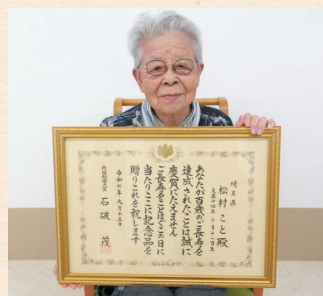 埼玉県
松村こと殿
大正十四年十月十一日生
あなたが百歳のご長寿を
達成されたことは誠に
慶賀にたえません
ご長寿をことほぐこの日に
当たりここに記念品を
贈りこれを祝します
令和七年九月十五日
内閣総理大臣 石破茂